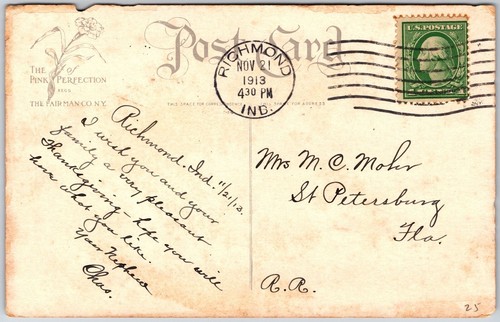 Post Card
THE of
PINK PERFECTION
THE FAIRMAN CO. N.Y.
THIS SPACE FOR
FOR ADDRESS
RICHMOND
NOV 21
1913
4 30 PM
IND.
U.S. POSTAGE
Richmond, Ind. 11/21/13.
I wish you and your
family a very pleasant
Thanksgiving - hope you will
have what you like.
Your Nephew
Chas.
Mrs M. C. Mohr
St Petersburg
Fla.
R.R.
25